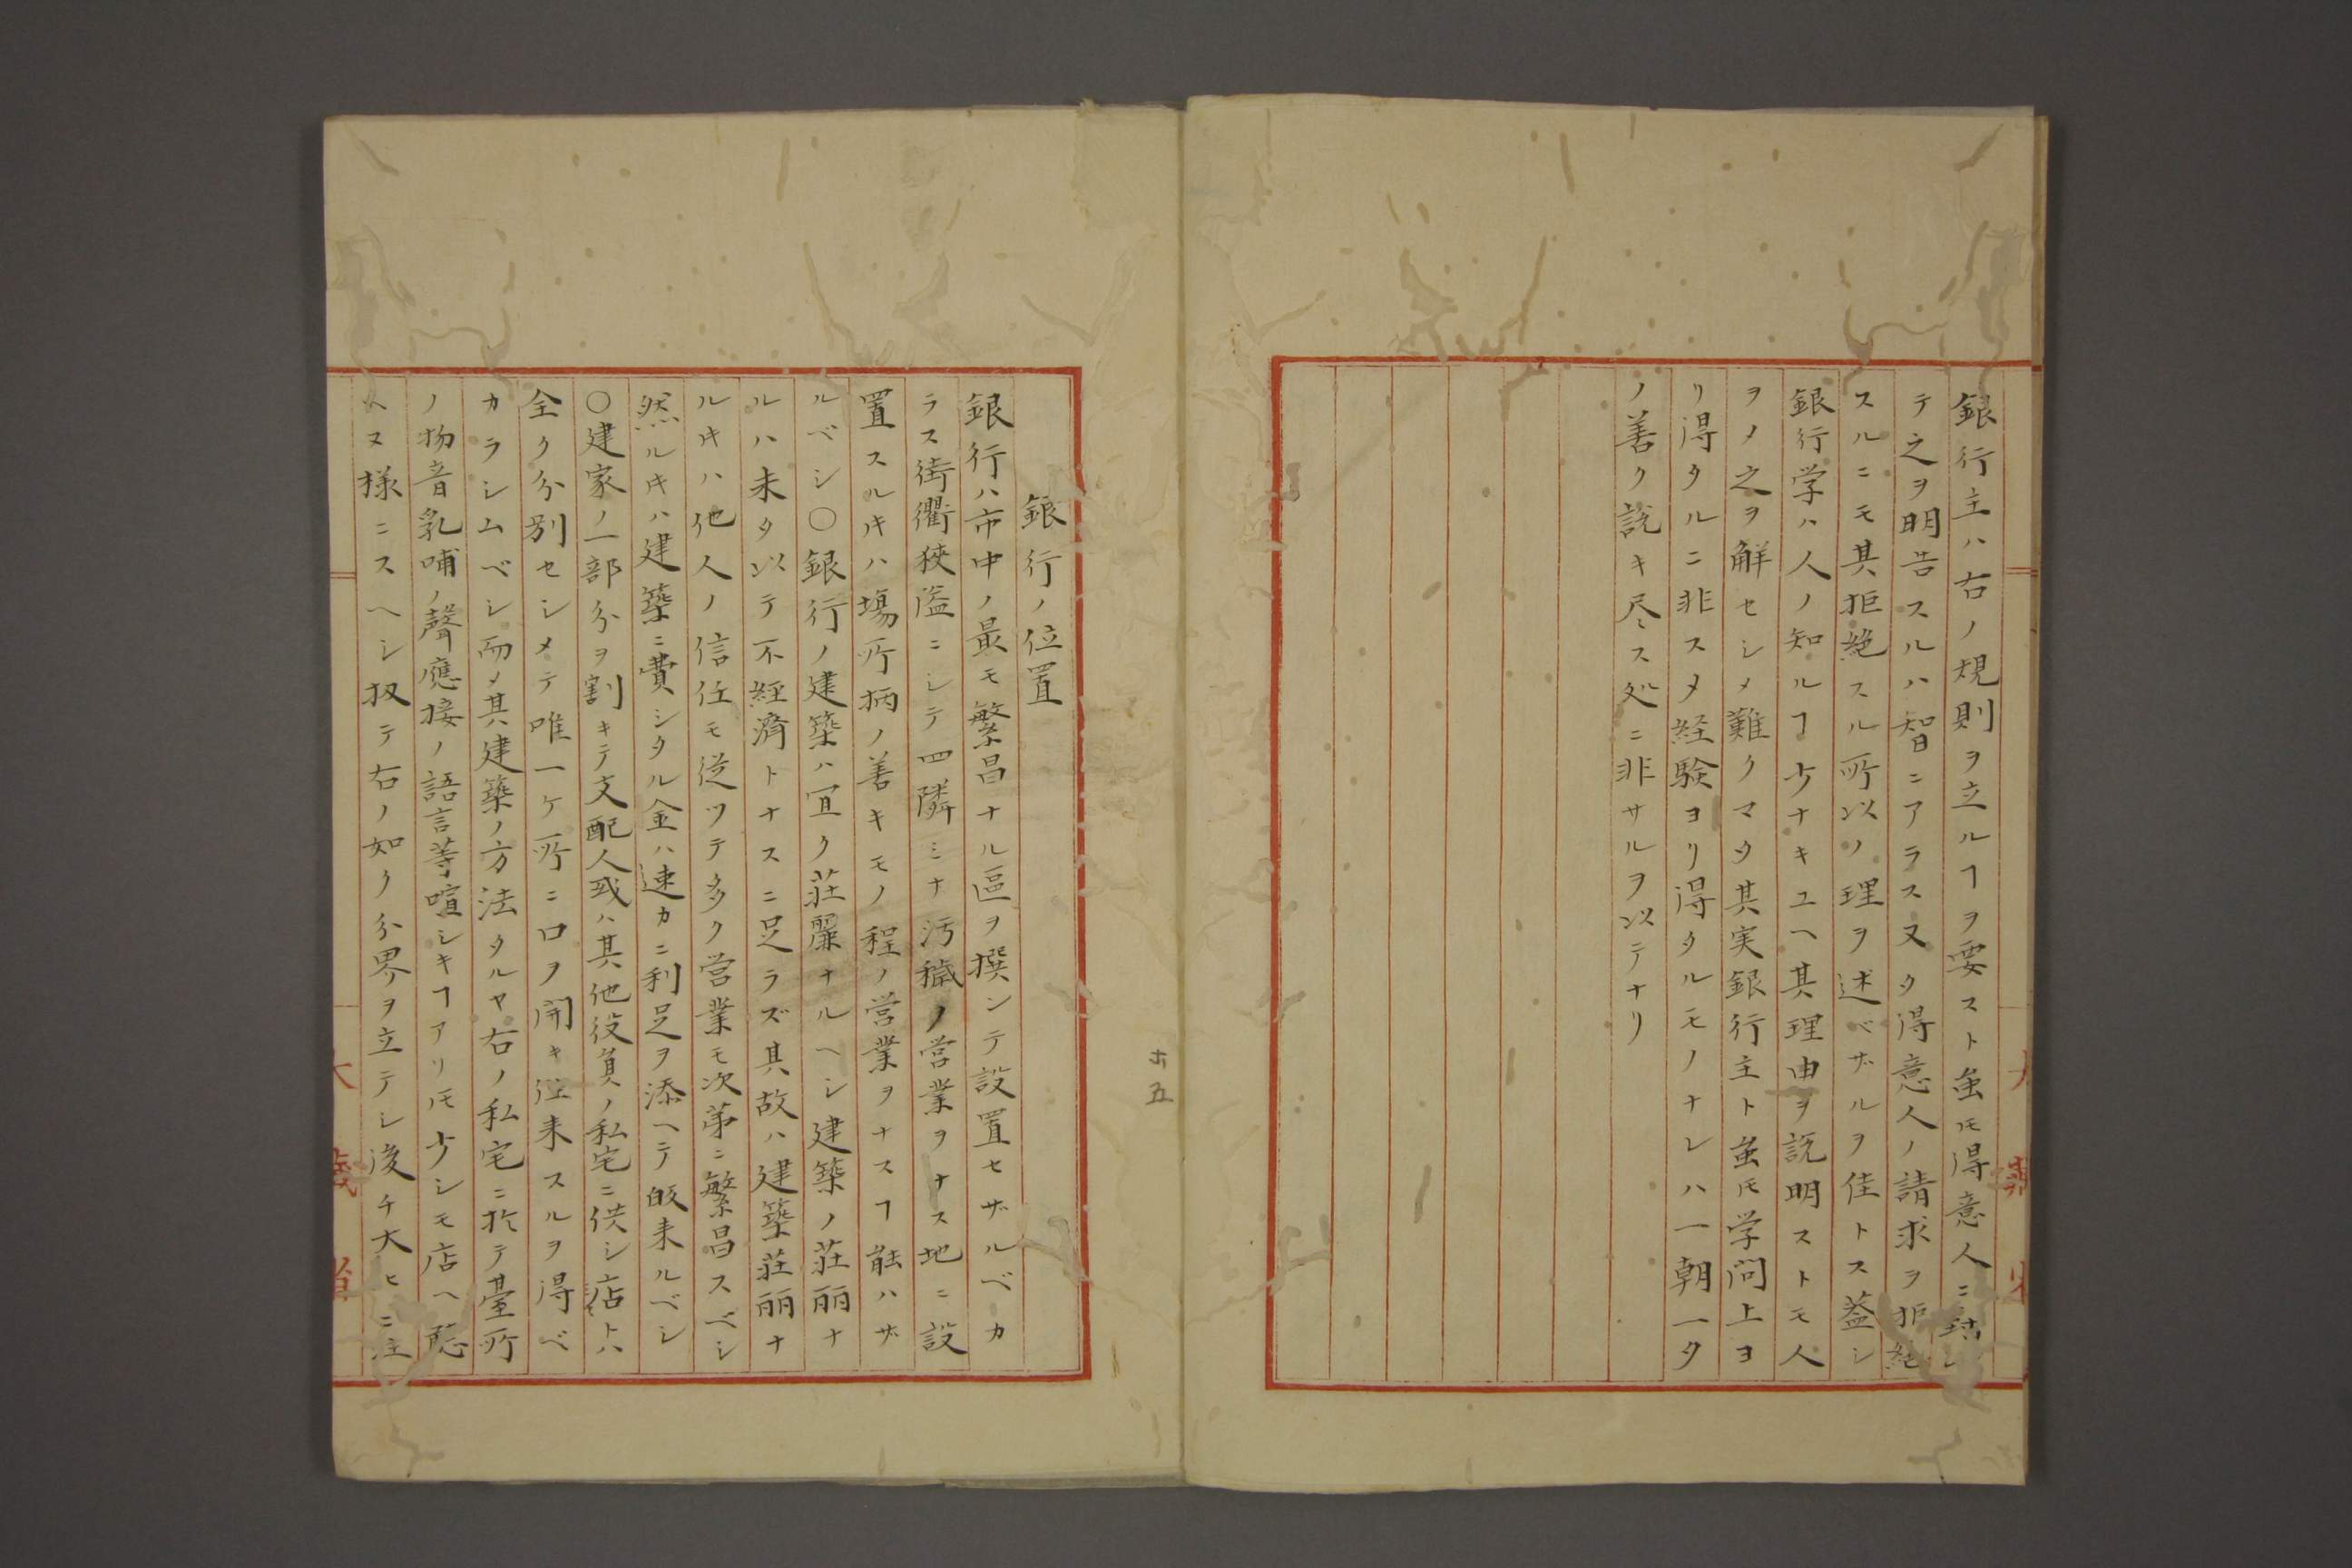 銀行主ハ右ノ規則ヲ立ルヿヲ要スト虽𪜈得意人ニ
テ之ヲ明告スルハ智ニアラス又タ得意人ノ請求ヲ拒絶
スルニモ其拒絶スル所以ノ理ヲ述ベザルヲ佳トス蓋シ
銀行学ハ人ノ知ルヿ少ナキユヘ其理由ヲ説明ストモ人
ヲメ之ヲ解セシメ難クマタ其実銀行主ト虽𪜈学問上ヨ
リ得タルニ非スメ経験ヨリ得タルモノナレハ一朝一タ
ノ善ク説キ尽ス処ニ非サルヲ以テナリ
銀行ノ位置
銀行ハ市中ノ最モ繁昌ナル區ヲ撰ンテ設置セザルベカ
ラス街衢狹溢ニシテ四隣ミナ汚穢ノ営業ヲナス地ニ設
置スルキハ塲所柄ノ善キモノ程ノ営業ヲナスヿ能ハザ
ルベシ〇銀行ノ建築ハ宜ク荘麗ナルヘシ建築ノ荘丽ナ
ルハ未タ以テ不経済トナスニ足ラズ其故ハ建築荘丽ナ
ルキハ他人ノ信任モ従ツテ多ク営業モ次第ニ繁昌スベシ
然ルキハ建築ニ費シタル金ハ速カニ利足ヲ添ヘテ皈来ルベシ
〇建家ノ一部分ヲ割キテ支配人或ハ其他役員ノ私宅ニ供シ店トハ
全ク分別セシメテ唯一ケ所ニ口ヲ開キ往来スルヲ得ベ
カラシムベシ而メ其建築ノ方法タルヤ右ノ私宅ニ於テ臺所
ノ物音乳哺ノ聲應接ノ語言等喧シキヿアリ𪜈少シモ店ヘ聴
ヘヌ様ニスヘシ扨テ右ノ如ク分界ヲ立テシ後チ大ヒニ注
大藏省
ホ五